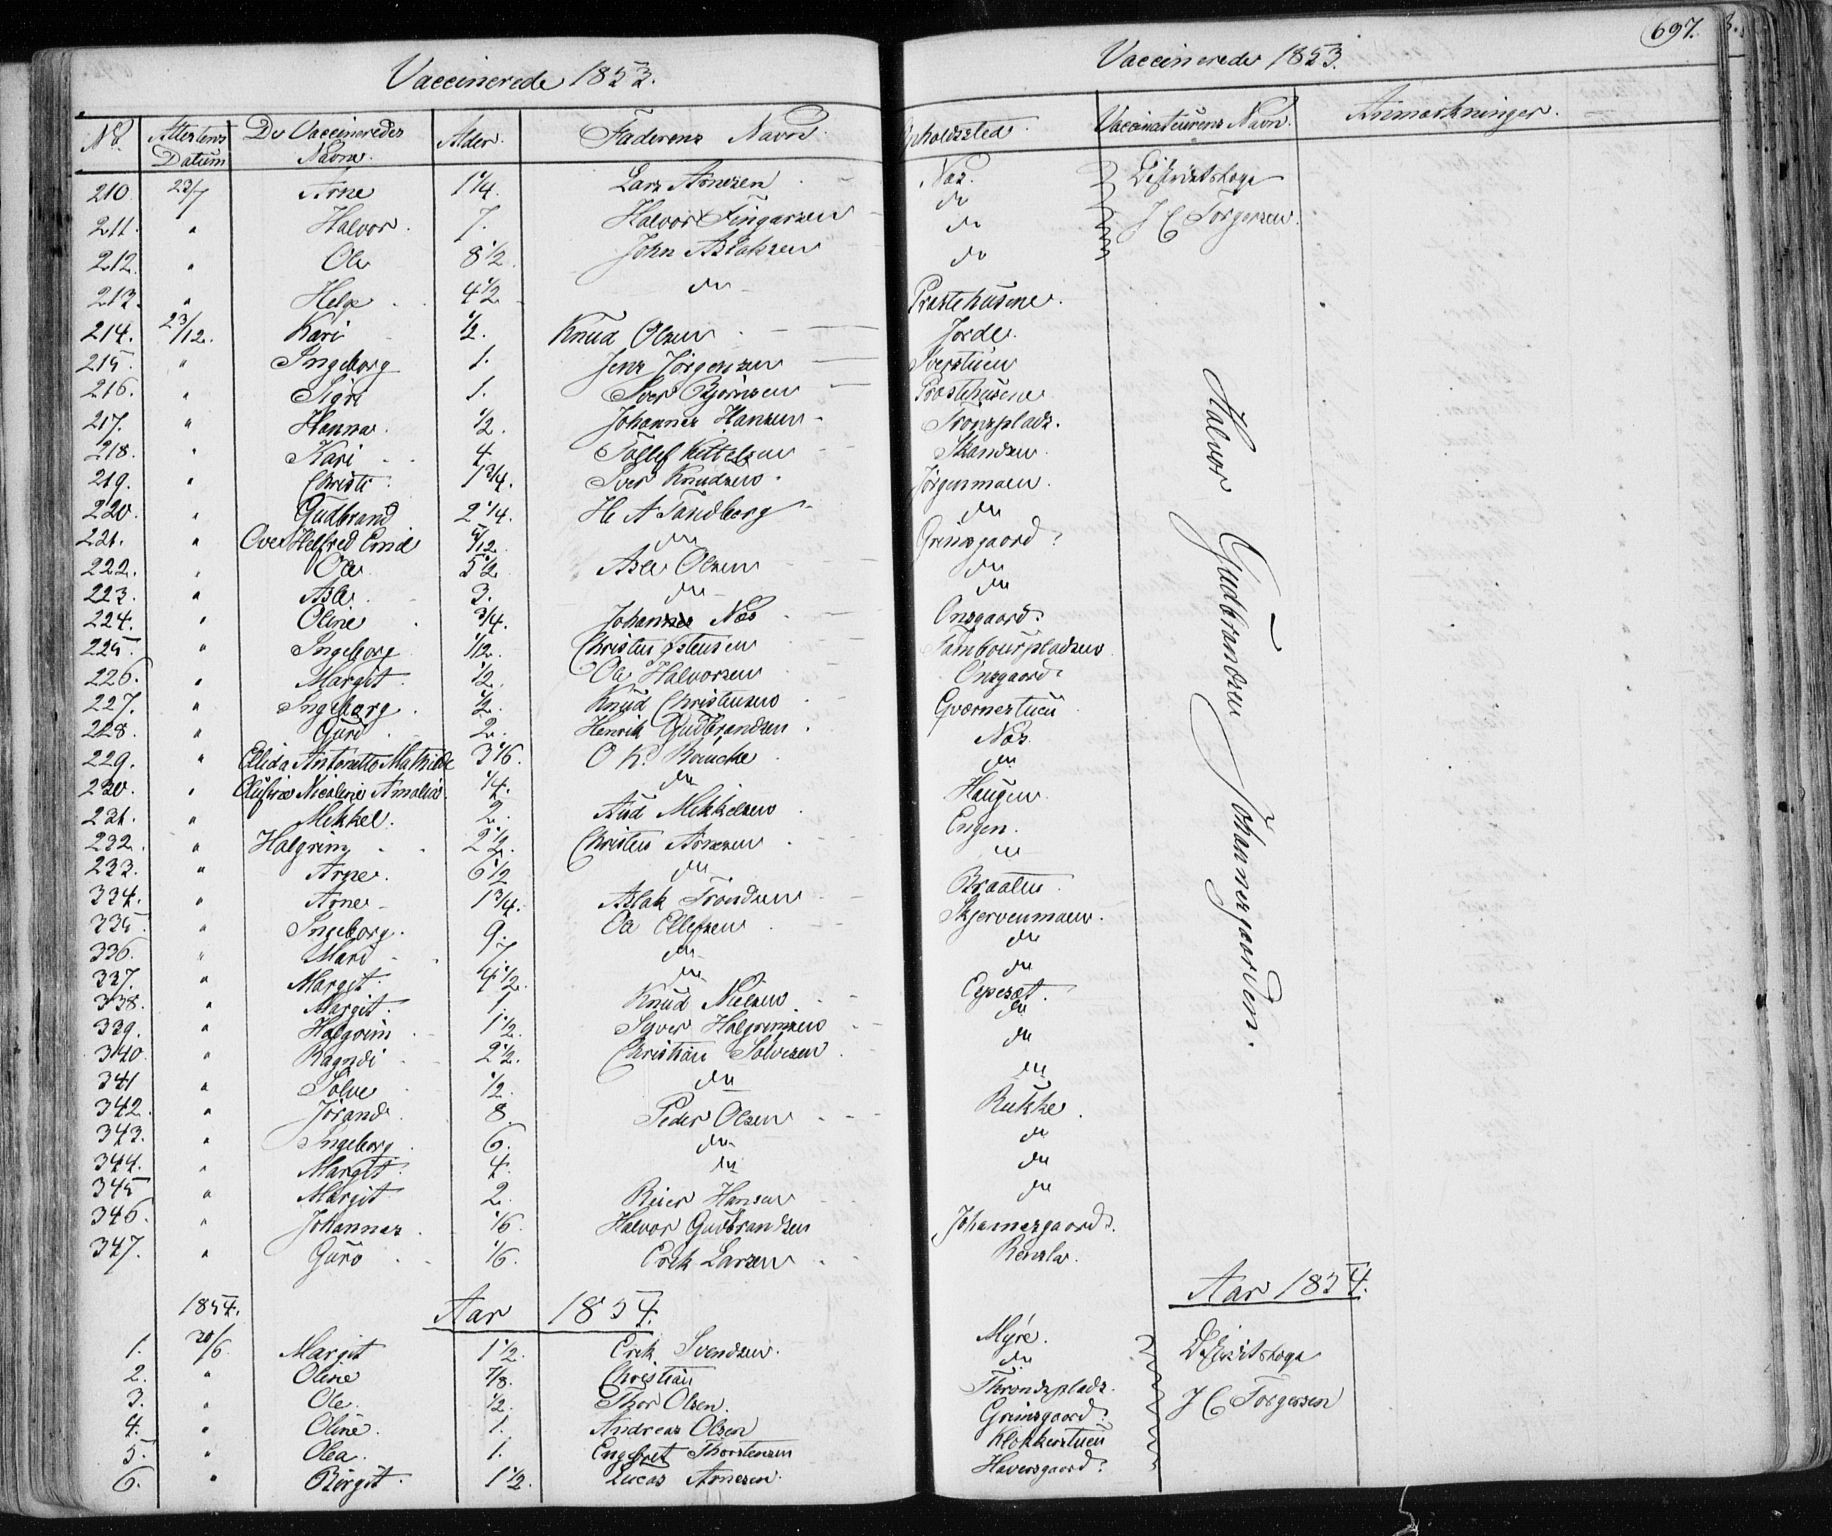 697.
Vaccinerede 1853. Vaccinerede 1853.
No. Attestens Datum De Vaccineredes Navne. Alder. Faderens Navn. Opholdssted. Vaccinateurens Navn. Anmærkninger.
210 23/7 Arne 1 1/4. Lars Arnesen Næs. Districtslæge
211. " Halvor. 7. Halvor Fingarsen do J C Torgersen.
212. " Ole 8 1/2. John Aslaksen do
213. " Helge 4 1/2 do do
214. 23/12. Kari 1/2. Knud Olsen Præstehusene.
215. " Ingeborg 1. Jens Jørgensen Jorde.
216. " Sigri 1. Iver Bjørnsen Iverstuen
217. " Hanna. 1/2. Johannes Hansen Præstehusene
218. " Kari 4. Tollef Kittelsen Tronsplads.
219. " Christi 1 3/4. Iver Knudsen Skandsen.
220. " Gudbrand 2 1/4. H A Sandberg Jørgenmoen.
221. " Ove Helfred Emid /12. do do
222. " Ole 5 1/2 Asle Olsen Grimsgaard
223. " Asle 3. do do
224. " Oline 3/4. Johannes Næs do
225. " Ingeborg 1/12. Christen Østensen Onsgaard
226. " Margit 1/2 Ole Halvorsen Tambourpladsen
227. " Ingeborg 1/2. Knud Christensen Onsgaard
228. " Guro 2. Henrik Gudbrandsen. Gværnestuen
229. " Elida Antonette Mathilde 3 1/6. O K. Næs
230. " Nicoline Amalie 1/4. do do
231. " Mikkel. 2. Aud Mikkelsen Haugen.
232. " Halgrim 2 1/2. Christen Arnesen Engen.
233. " Arne. 6 1/2 do do
334. " Arne 1 3/4. Aslak Trondsen Braaten.
335 " Ingeborg. 9. Ole Ellefsen Skjervenmoen.
336. " Mari 7. do do
337. " Margit 4 1/2. do do
338. " Margit. 1. Knud Nielsen
339. " Halgrim 1 1/2. Syver Halgrimsen do
340 " Ragndi 2 1/2. Christian Solvesen do
341 " Solve 1/2. do do
342. " Jørand 8 Peder Olsen Rukke.
343. " Ingeborg. 6. do do
344. " Margit 4. do do
345 " Margit 2. Reier Hansen do
346. " Johannes 1/6. Halvor Gudbrandsen Johannesgaard.
347. " Guro 1/6. Erik Larsen
Halvor Gudbrandsen Johannesgaarden.
1854. Aar 1854. Aar 1854.
1. 20/6 Margit 1 1/2. Erik Svendsen. Myre. Districtslæge
2. " Oline 7/8. Christian do
3. " Ole. 1/2. Thor Olsen. Throndsplads. J C Torgersen
4. " Oline. 1. Andreas Olsen Grimsgaard
5. " Olea. 1. Engebret Thorstensen Klokkerstuen
6. " Birgit. 1 1/2. Lucas Arnesen. Haversgaard